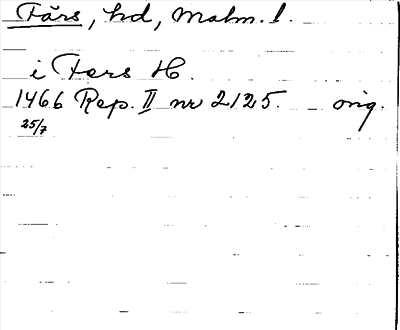 Färs, hd, Malm. l.
i Fers H.
1466 Rep. II nr 2125. - orig.
25/7